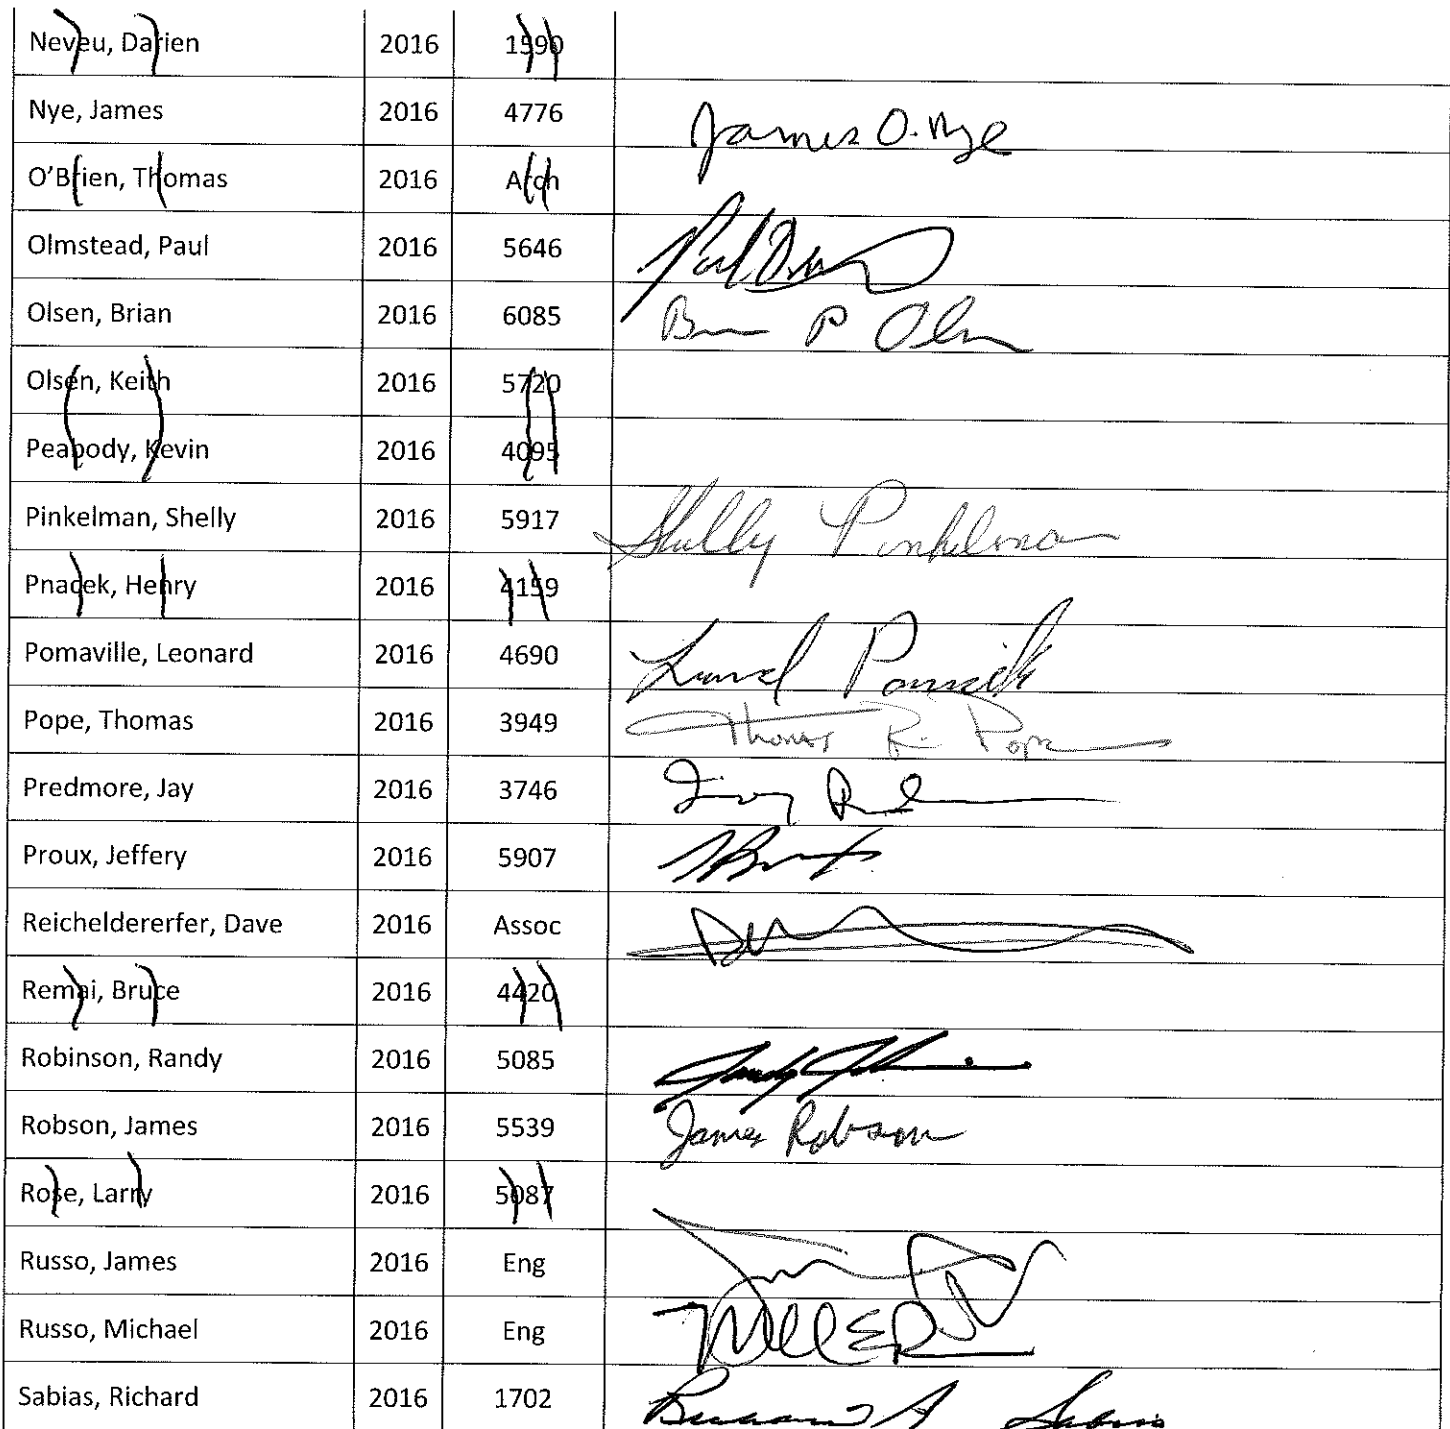 Neveu, Darien 2016 1590
Nye, James 2016 4776 James O. Nye
O'Brien, Thomas 2016 Arch
Olmstead, Paul 2016 5646 Paul
Olsen, Brian 2016 6085 P Olsen
Olsen, Keith 2016 5720
Peabody, Kevin 2016 4095
Pinkelman, Shelly 2016 5917 Shelly Pinkelman
Pnacek, Henry 2016 4159
Pomaville, Leonard 2016 4690
Pope, Thomas 2016 3949 Thomas R. Pope
Predmore, Jay 2016 3746
Proux, Jeffery 2016 5907
Reicheldererfer, Dave 2016 Assoc
Remai, Bruce 2016 4420
Robinson, Randy 2016 5085
Robson, James 2016 5539 James Robson
Rose, Larry 2016 5087
Russo, James 2016 Eng
Russo, Michael 2016 Eng
Sabias, Richard 2016 1702